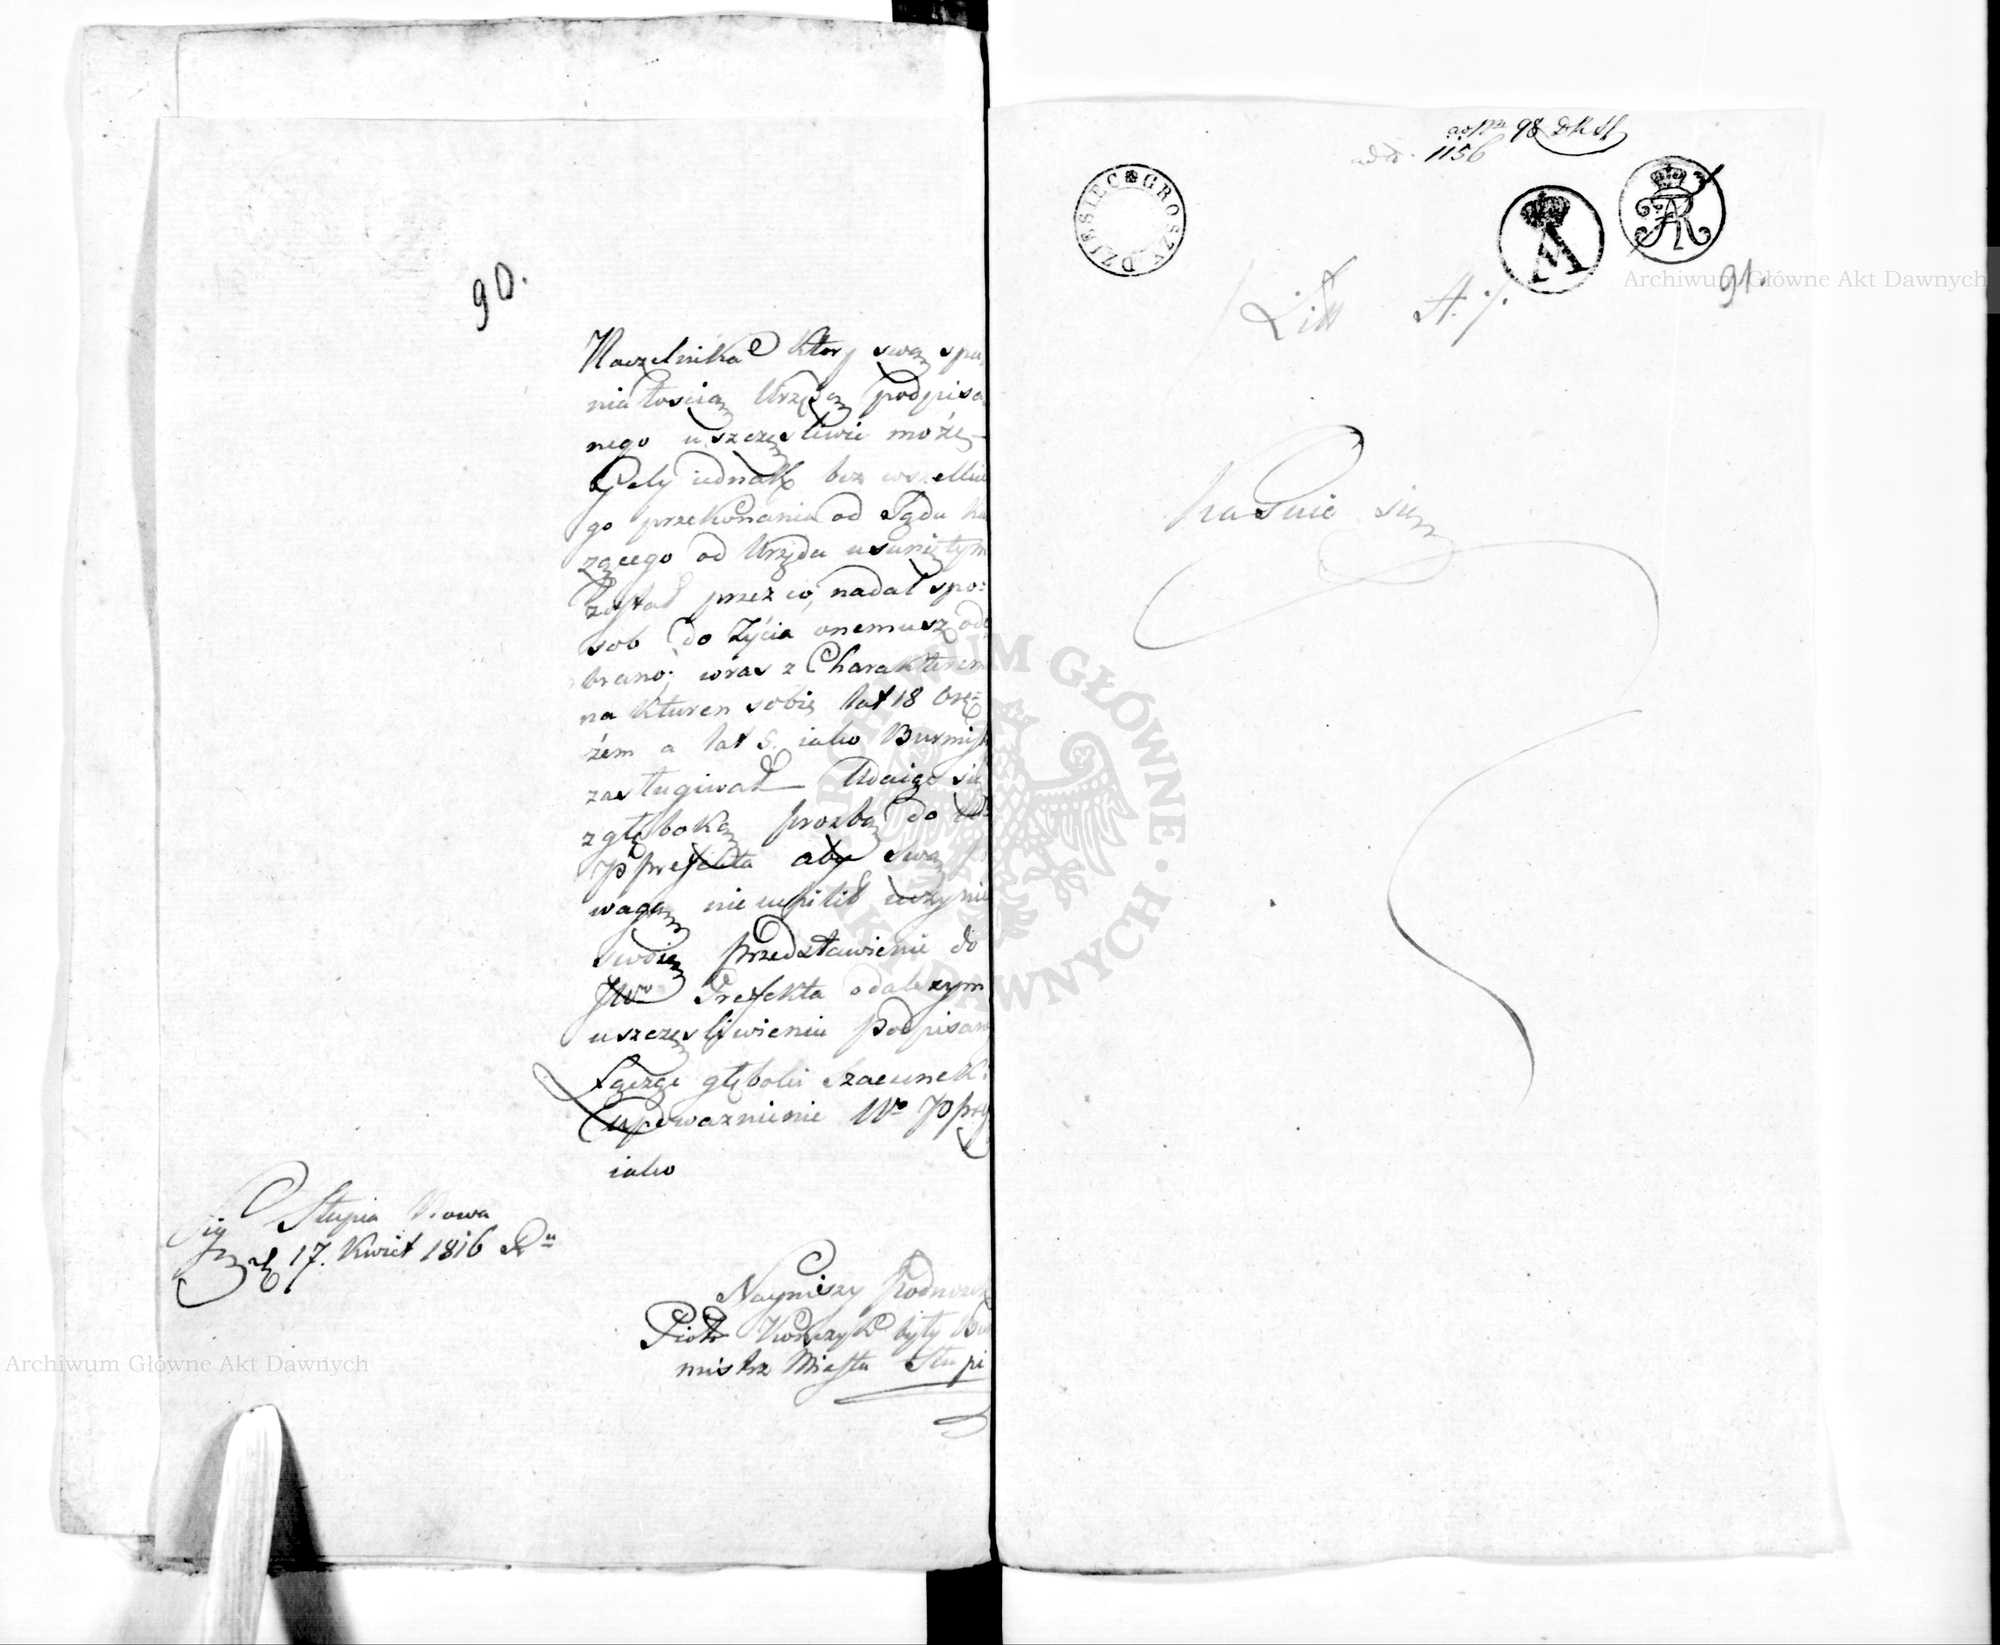 90.
Naczelnika który swą spa
niałoscią Urzędą podpisa
nego uszczęsliwić może
Gdy iednak bez wszelkie
go przekonania od Sądu ka
rzącego od Urzędu usuniętym
został przez co, nadal spo=
sob do Zycia onemusz ode
brano; wraz z Charakterem
na ktoren sobie lat 18
a lat 5. iako Burmistrz
zasługiwał Udaię się
z głęboką prozbą do
Pprefekta aby swą
wagą nie uczynić
swoie przedstawienie do
JWo Prefekta o dalszym
uszczęsliwieniu podpisan
Łączę głęboki Szacunek
upoważnienie Wo Ppref
iako
Słupia Nowa
17. Kwiet 1816 Ru
Nayniższy Podnożek
Piotr były Bur
mistrz Miasta Słupi
98
1156
DZIESIĘC GROSZY
91.
/ Litt A. /.
Kaśnie się
ARCHIWUM GŁÓWNE AKT DAWNYCH
Archiwum Główne Akt Dawnych
Archiwum Główne Akt Dawnych